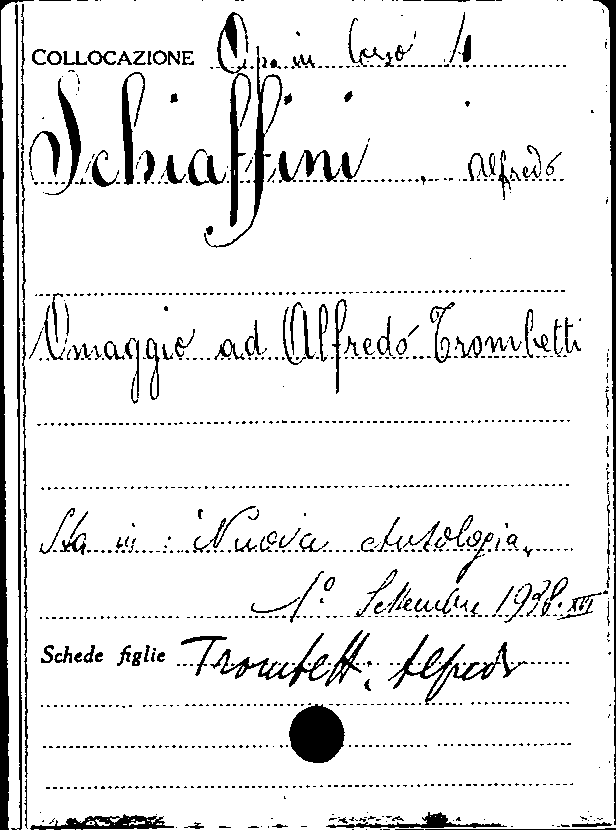 COLLOCAZIONE Op. in Corso 4
Schiaffini, Alfredo
Omaggio ad Alfredo Trombetti
Sta in: "Nuova Antologia"
1° Settembre 1938. XVI
Schede figlie Trombetti, Alfredo